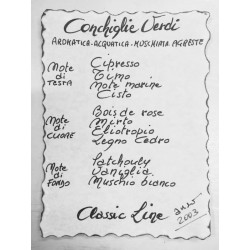 Conchiglie Verdi
AROMATICA-ACQUATICA-MUSCHIATA AGRESTE
Note di TESTA
Cipresso
Timo
Note marine
Cisto
Note di CUORE
Bois de rose
Mirto
Eliotropio
Legno Cedro
Note di FONDO
Patchouly
Vaniglia
Muschio bianco
Classic Line
anno 2003